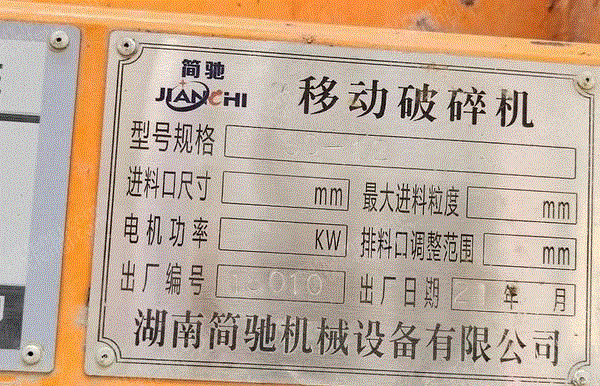 简驰
JIANCHI
移动破碎机
型号规格
进料口尺寸 mm 最大进料粒度 mm
电机功率 KW 排料口调整范围 mm
出厂编号 出厂日期 年 月
湖南简驰机械设备有限公司